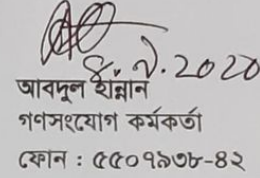 2020
আবদুল হান্নান
গণসংযোগ কর্মকর্তা
ফোন : ৫৫০৭৯৩৮-৪২